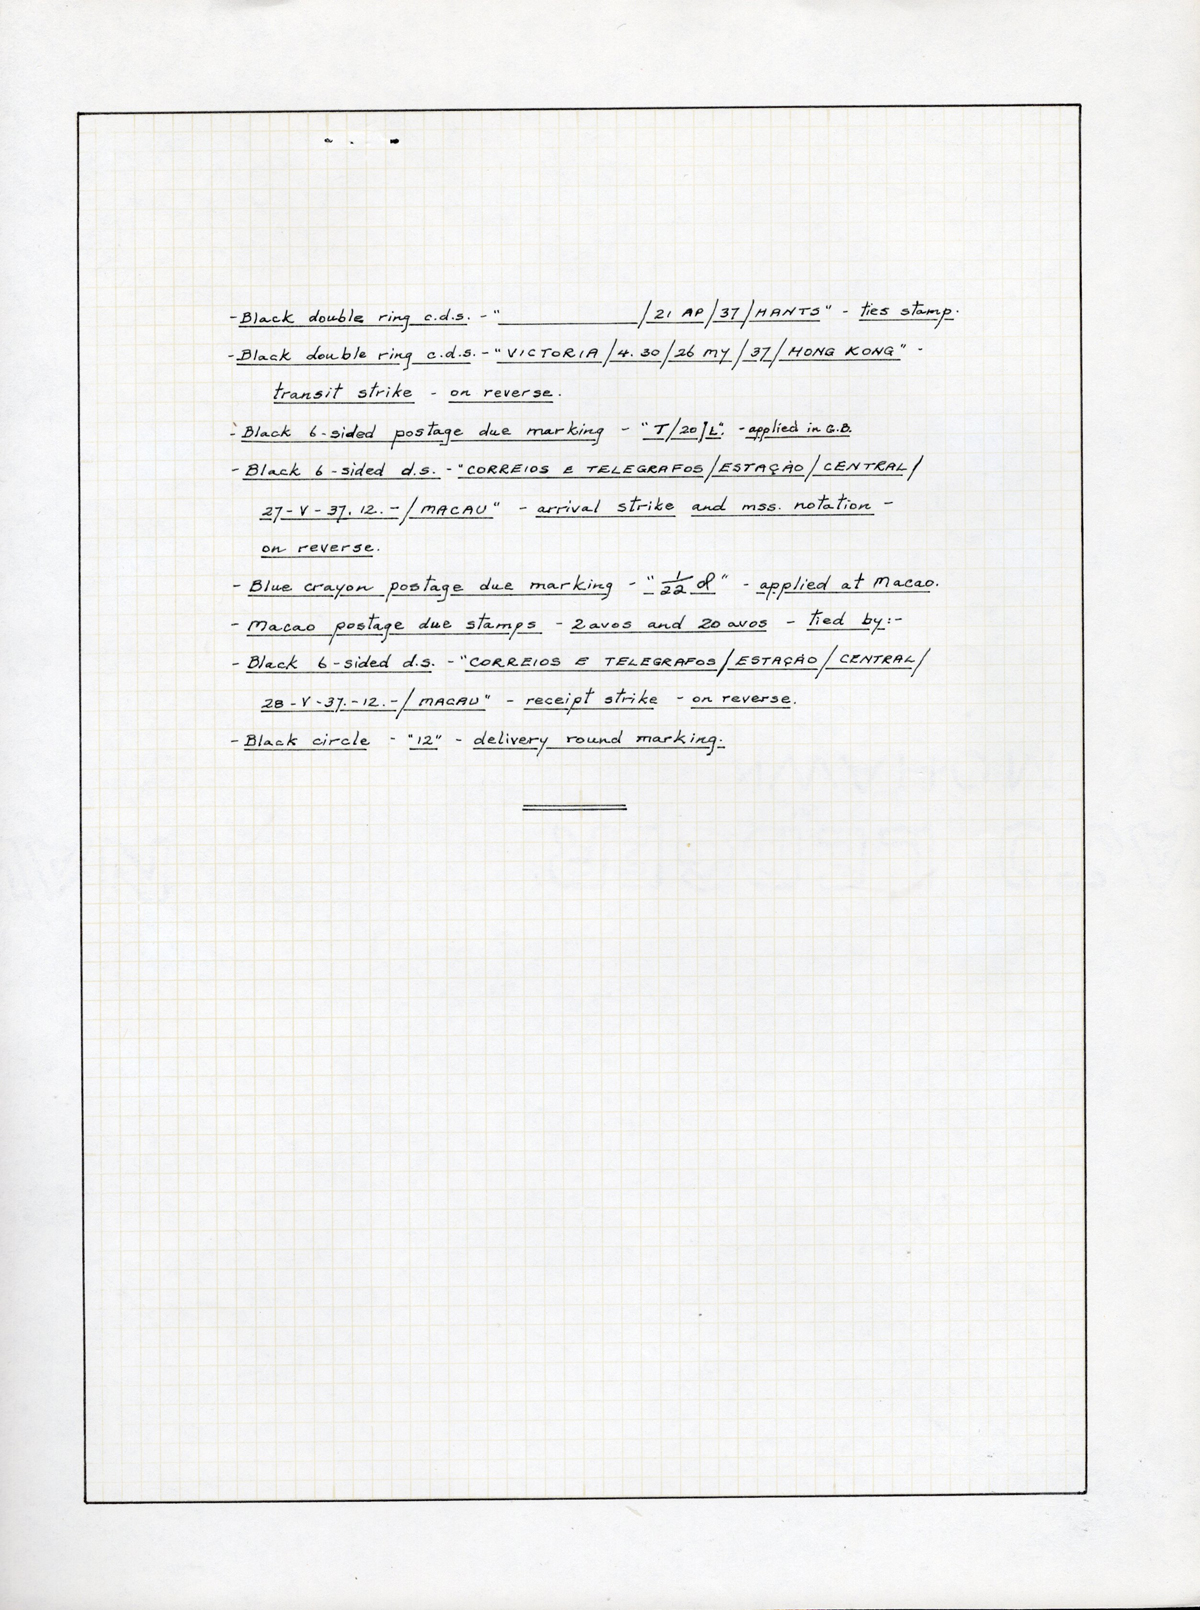 - Black double ring c.d.s. - "____________/21 AP/37/HANTS" - ties stamp.
- Black double ring c.d.s. - "VICTORIA/4.30/26 MY/37/HONG KONG" -
transit strike - on reverse.
- Black 6-sided postage due marking - "T/20/L". - applied in G.B.
- Black 6-sided d.s. - "CORREIOS E TELEGRAFOS/ESTAÇÃO/CENTRAL/
27-V-37.12.-/MACAU" - arrival strike and mss. notation -
on reverse.
- Blue crayon postage due marking - "1/22 d" - applied at Macao.
- Macao postage due stamps - 2 avos and 20 avos - tied by:-
- Black 6-sided d.s. - "CORREIOS E TELEGRAFOS/ESTAÇÃO/CENTRAL/
28-V-37.-12.-/MACAU" - receipt strike - on reverse.
- Black circle - "12" - delivery round marking.